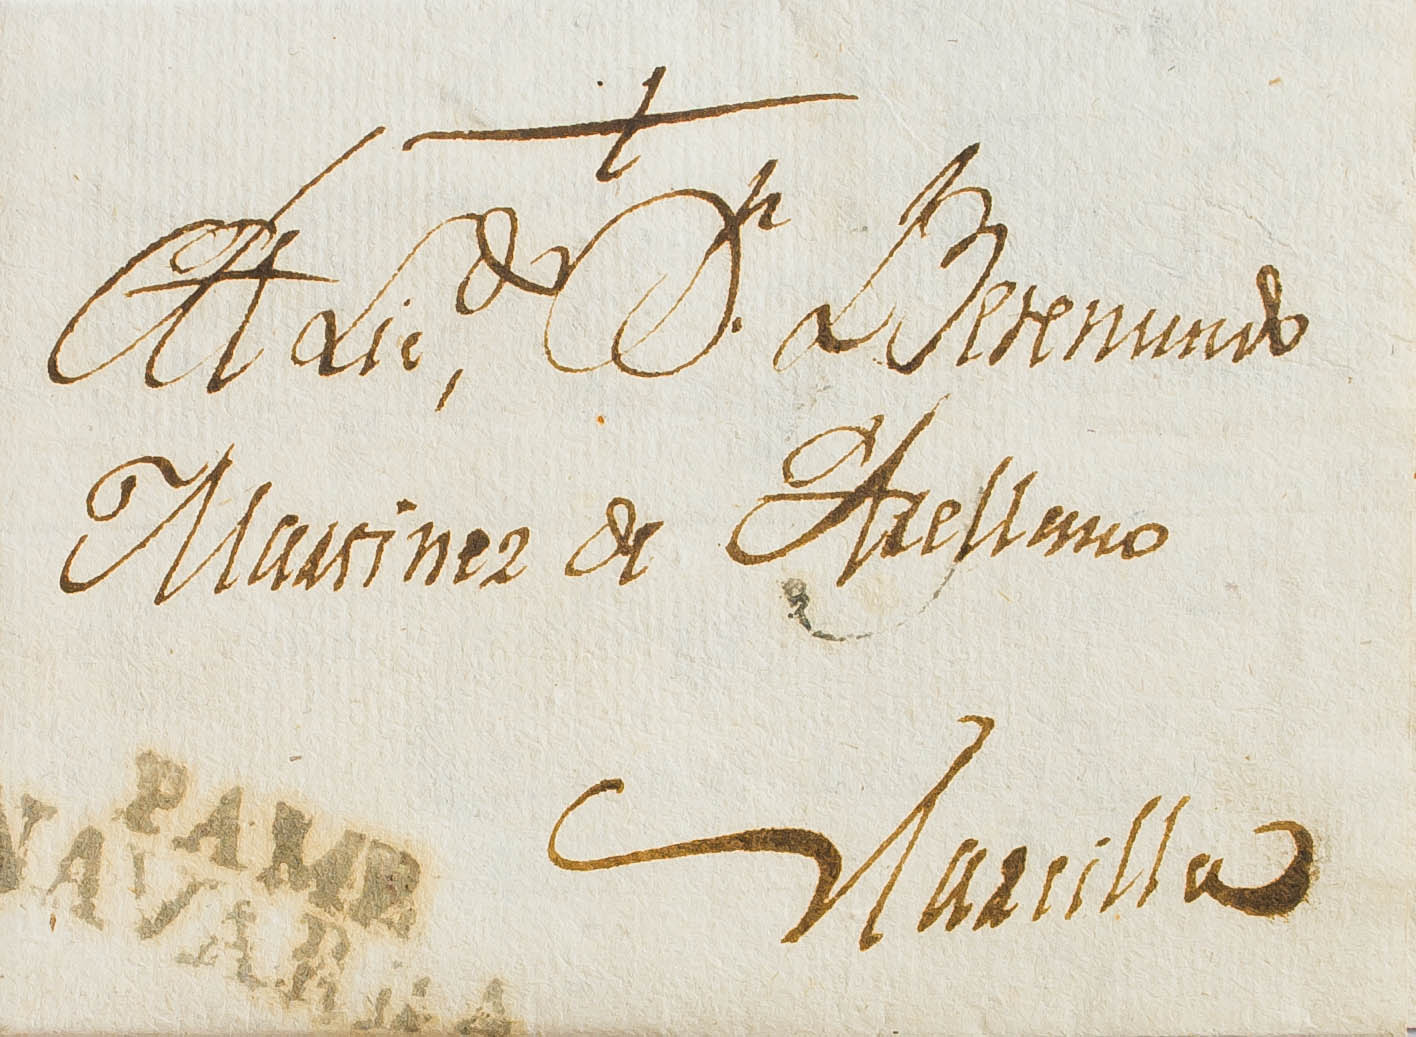 Al Lic,do Dn. Beremundo
Martinez de Arellano
Marcilla
PAMP
NAVARRA